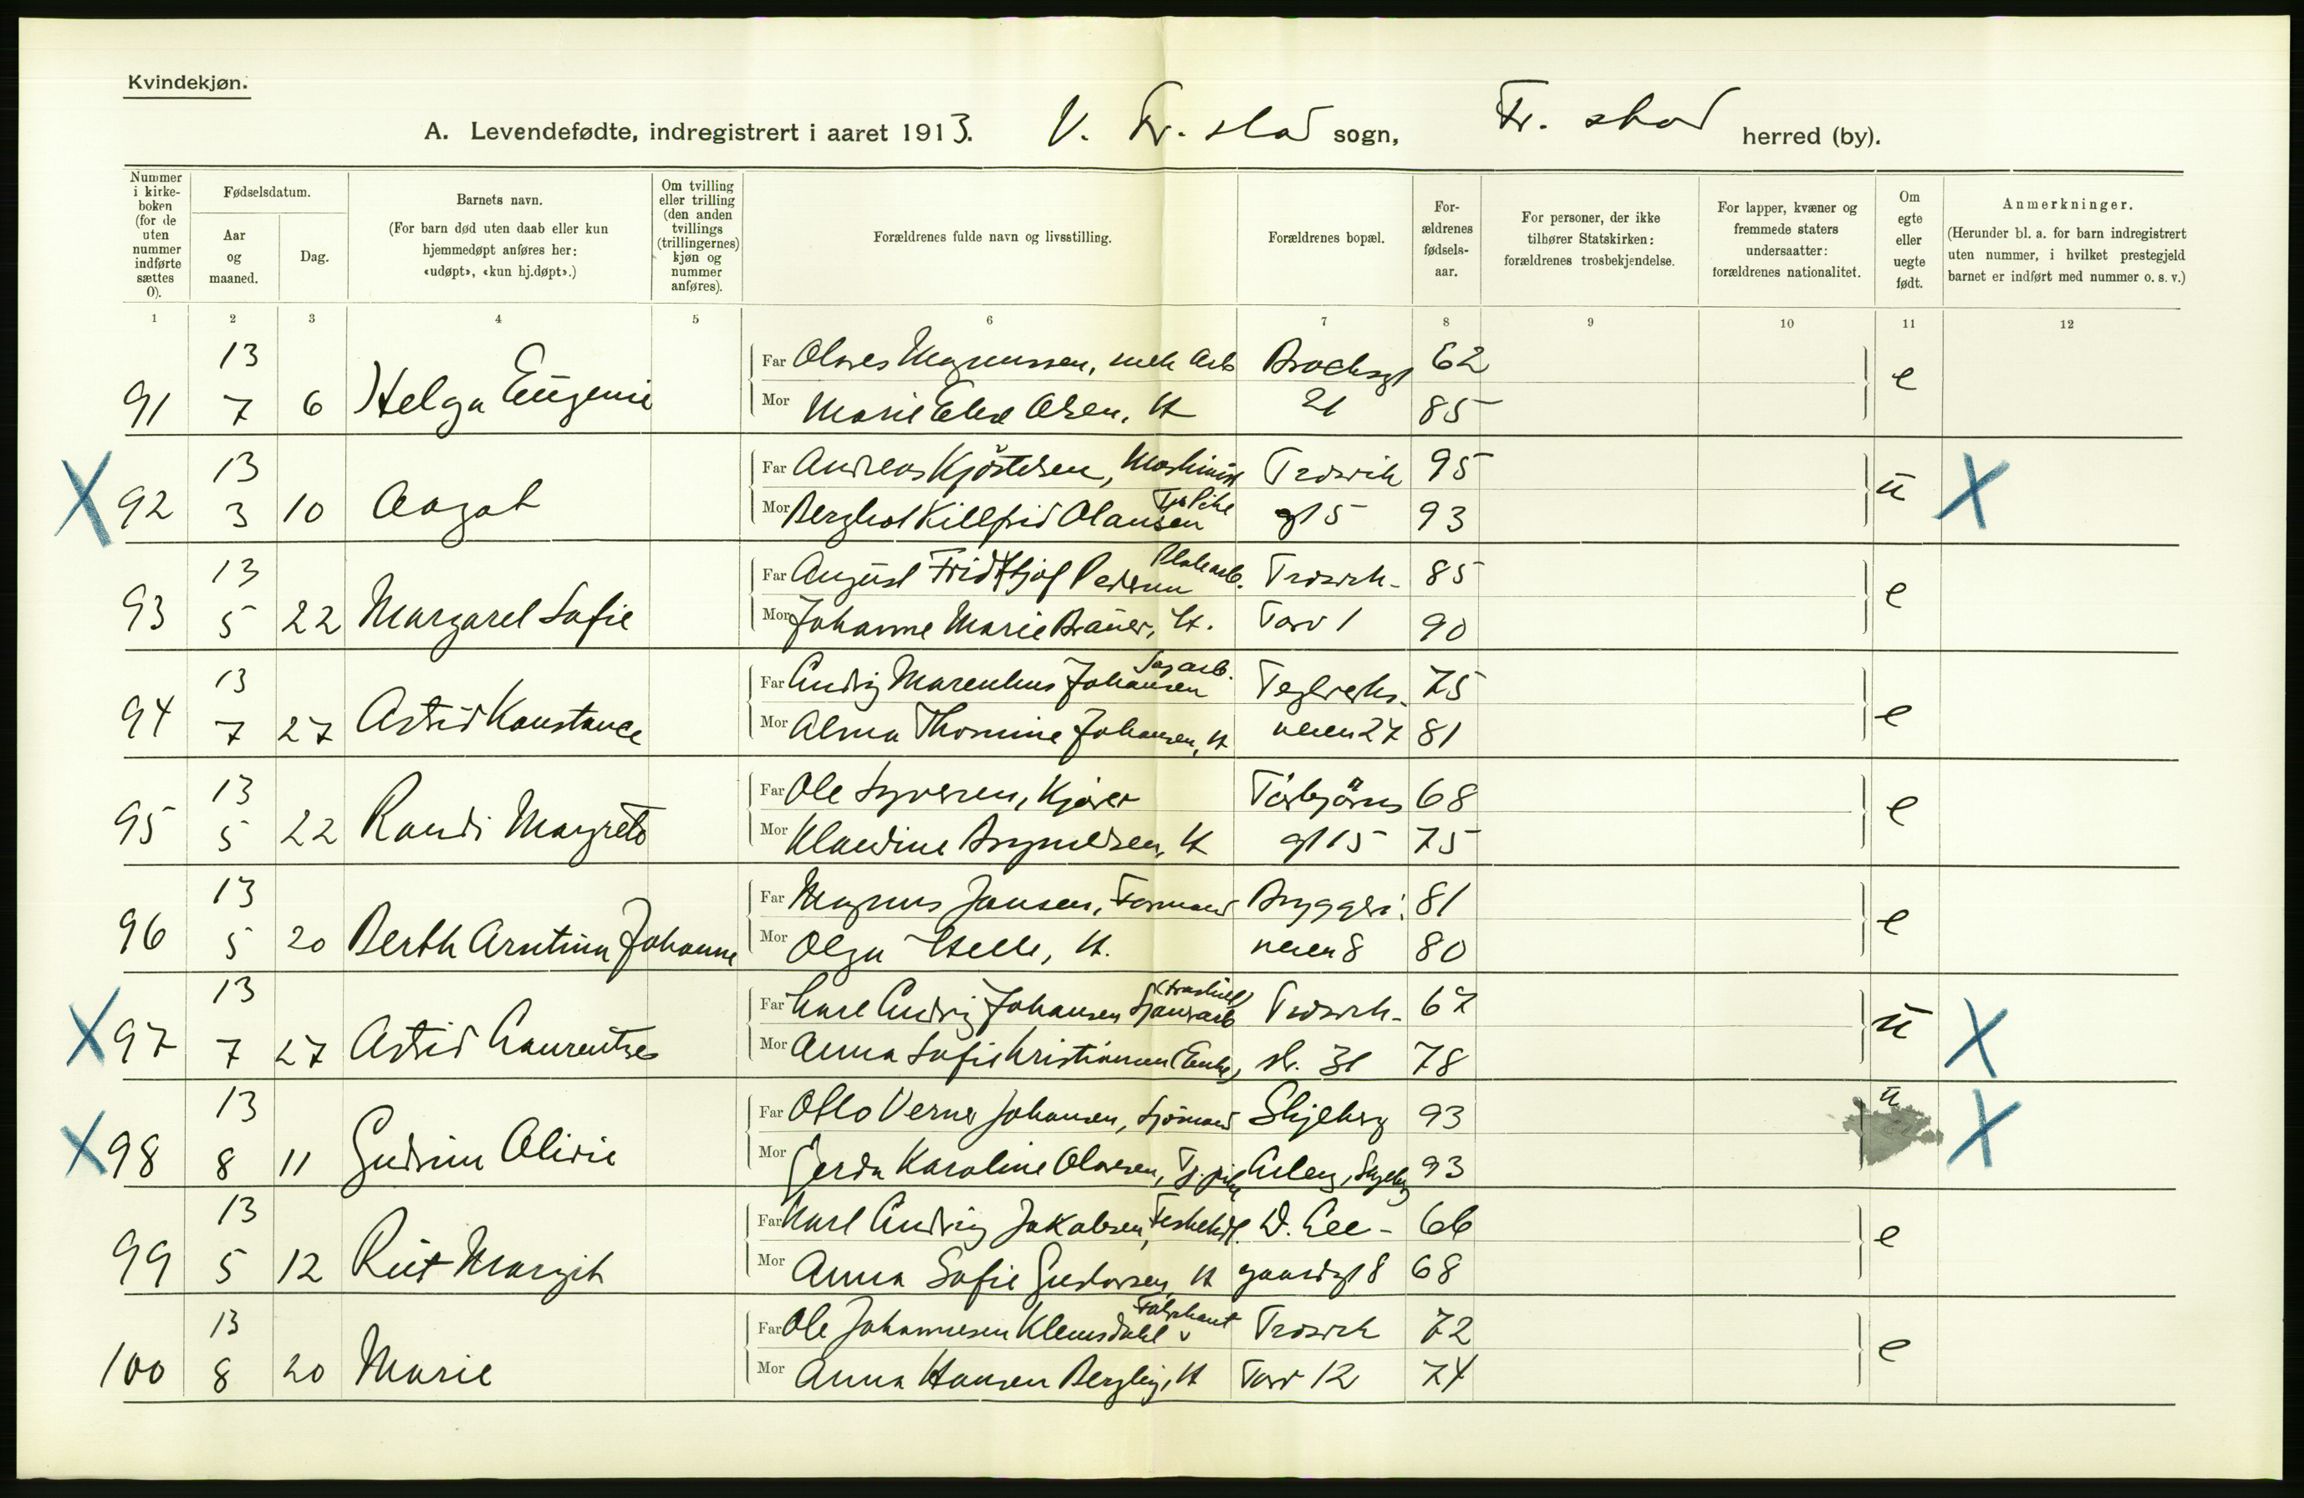 Kvindekjøn.
A. Levendefødte, indregistrert i aaret 1913. V. Fr. stad sogn, Fr. stad herred (by).
Nummer i kirkeboken (for de uten nummer indførte sættes 0).
Fødselsdatum.
Aar og maaned.
Dag.
Barnets navn.
(For barn død uten daab eller kun hjemmedøpt anføres her: «udøpt», «kun hj.døpt».)
Om tvilling eller trilling (den anden tvillings (trillingernes) kjøn og nummer anføres).
Forældrenes fulde navn og livsstilling.
Forældrenes bopæl.
For-ældrenes fødsels-aar.
For personer, der ikke tilhører Statskirken: forældrenes trosbekjendelse.
For lapper, kvæner og fremmede staters undersaatter: forældrenes nationalitet.
Om egte eller uegte født.
Anmerkninger.
(Herunder bl. a. for barn indregistrert uten nummer, i hvilket prestegjeld barnet er indført med nummer o. s. v.)
1 2 3 4 5 6 7 8 9 10 11 12
91 13 7 6 Helga Eugenie e
Far Olaves Magnussen, mek Arb Brochsgt 62
Mor Marie Elise Olsen, H 21 85
X 92 13 3 10 Aagot ū X
Far Andreas Kjöstelsen, Maskinist Trosvik 95
Mor Berghot Killfrid Olaussen gt 5 93
93 13 5 22 Margaret Sofie e
Far August Fridthjof Pedersen Trosvik- 85
Mor Johanne Marie Bräuer, H. Torv 1 90
94 13 7 27 Astrid Konstance e
Far Ludvig Marenius Johansen Sagarb. Teglverks- 75
Mor Alma Thomine Johansen, H veien 27 81
95 13 5 22 Randi Margrete e
Far Ole Syversen, Kjører Torbjörns 68
Mor Klaudine Brynildsen, H gt 15 75
96 13 5 20 Berth Arntina Johanne e
Far Magnus Jansen, Formand Bryggeri. 81
Mor Olga Helle, H. veien 8 80
X 97 13 7 27 Astrid Laurentze ū X
Far Karl Ludvig Johansen (fraskilt) Trosvik- 67
Mor Anna Sofie Kristiansen (Enke) st. 31 78
X 98 13 8 11 Gudrun Olivie ū X
Far Otto Verner Johansen, Sjömand Skjeberg 93
Mor Gerda Karoline Olavesen, Tj. pike 93
99 13 5 12 Rut Margit e
Far Karl Ludvig Jakobsen, Fiskehdl. W. Lee- 66
Mor Anna Sofie Gustavsen, H gaardsgt 8 68
100 13 8 20 Marie e
Far Ole Johannesen Klemsdahl Fabrikant Trosvik 72
Mor Anna Hansen Bergby, H Torv 12 74